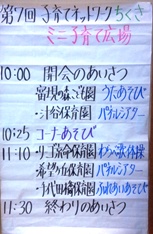 第7回 子育てネットワークちくさ
ミニ子育て広場
10:00 開会のあいさつ
の森こども園 うたあそび
・汁谷保育園 パネルシアター
10:25 コーナーあそび
11:10 ・りこ 保育園 わらべ歌体操
・希望ヶ丘保育園 パネルシアター
・千代田橋保育園 ふれあいあそび
11:30 終わりのあいさつ